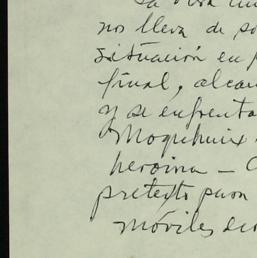 la
nos lleva de
situación en
final, alcan
y se enfrenta
Moquihuix
heroína —
pretexto para
móviles